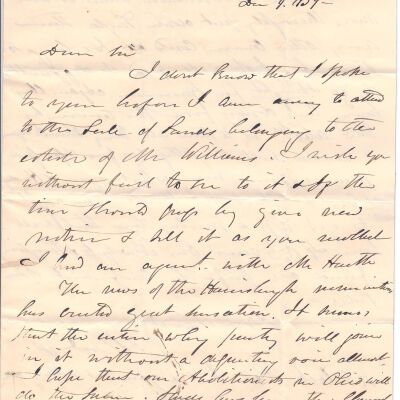 Dec 9. 1839 -
Dear Sir
I dont know that I spoke
to you before I came away to attend
to the Sale of Lands belonging to the
estate of Mr Williams. I wish you
without fail to see to it & if the
time should pass by give new
notice & sell it as you
I did an agent. with Mr Heath
The news of the Harrisburgh nomination
has created great sensation. It seems
that the entire whig party will join
in it without a voice almost
I hope that our Abolitionists in Ohio will
do the same. the